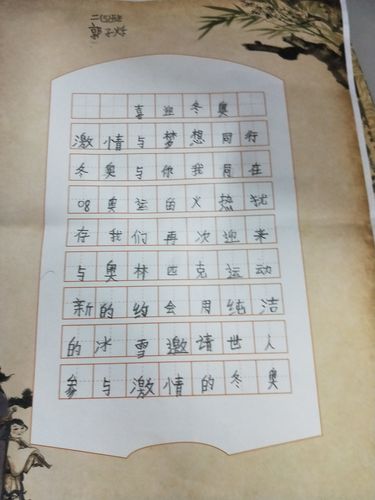 喜迎冬奥
激情与梦想同行
冬奥与你我同在
08奥运火热犹
存我们再次迎来
与奥林匹克运动
新的约会用纯洁
的冰雪邀请世人
参与激情的冬奥